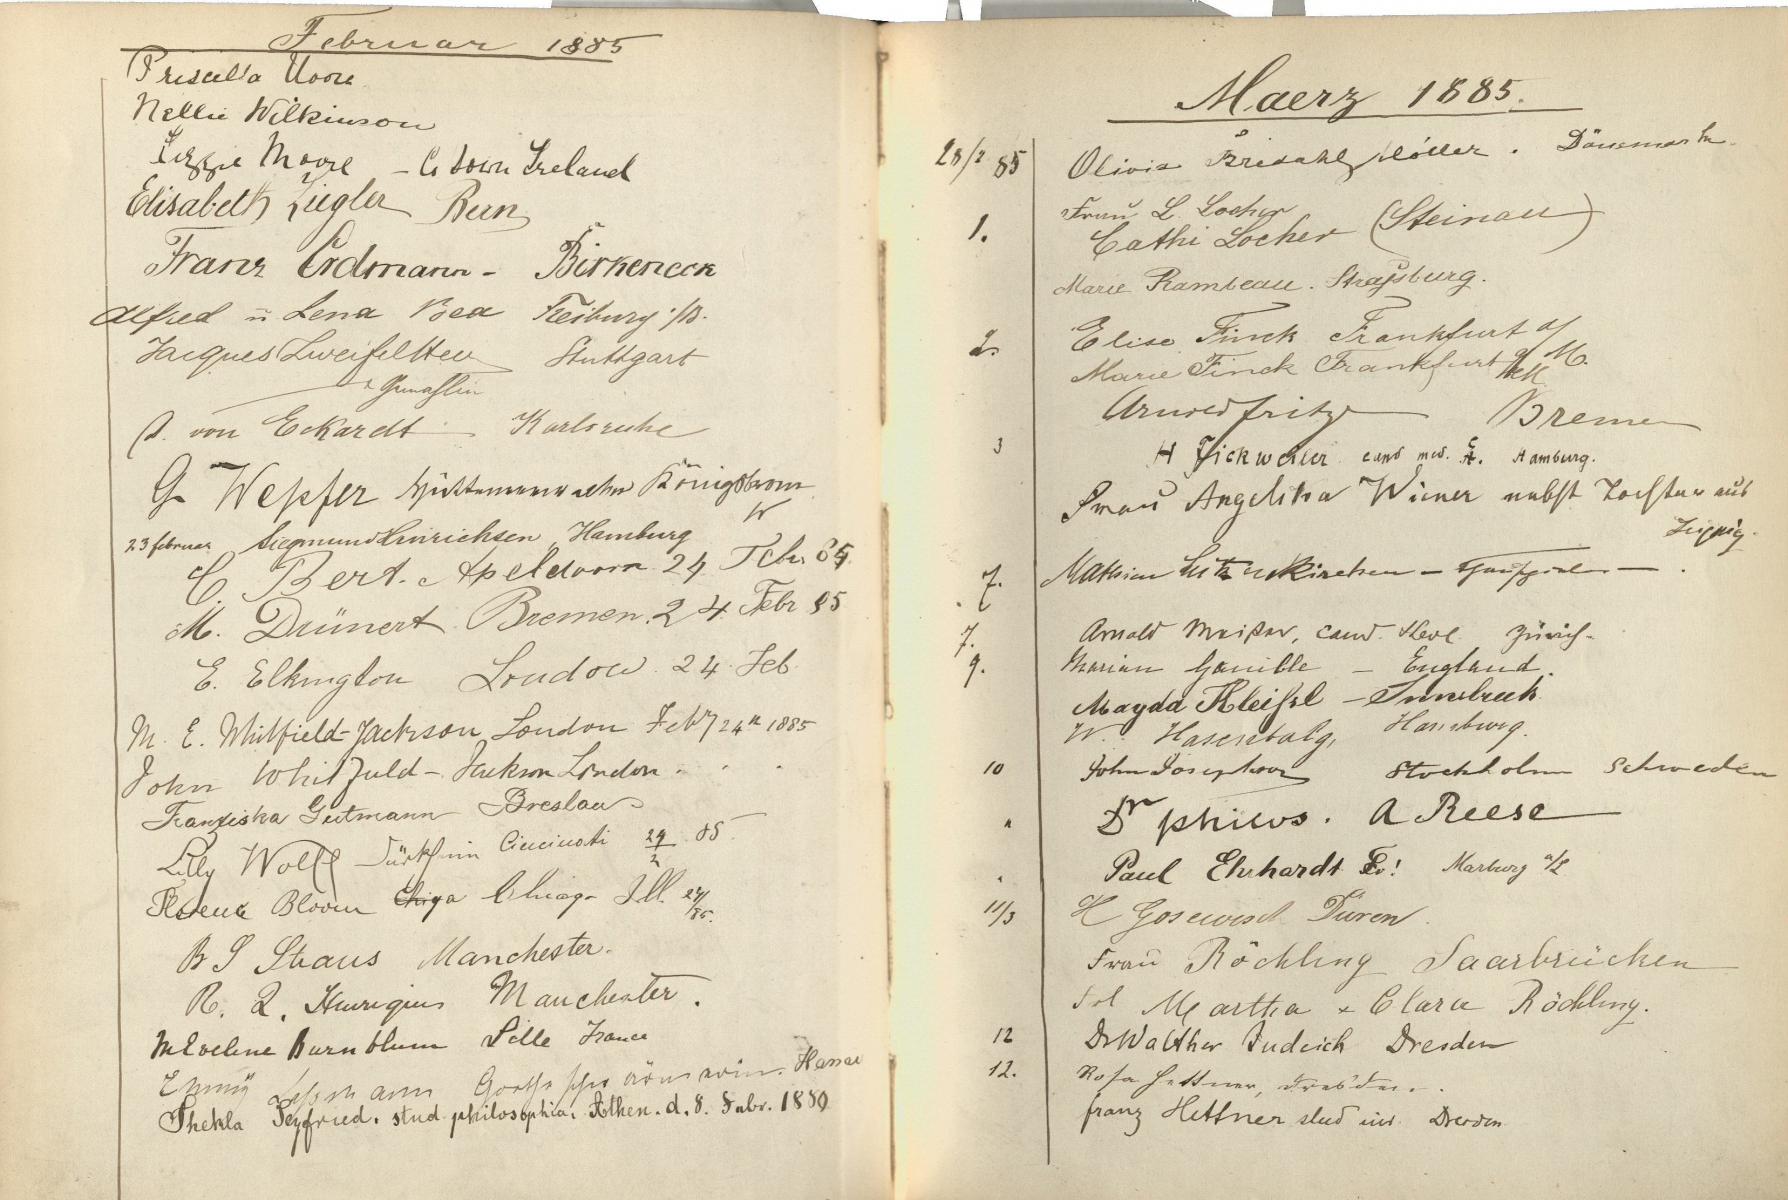 Februar 1885
Priscilla Moore
Nellie Wilkinson
Lizzie Moore - Co Down Ireland
Elisabeth Ziegler Bern
Franz Erdmann - Birkeneck
Alfred u Lena Bea Freiburg i/B.
Jacques Stuttgart
+ Gemahlin
von Eckardt Karlsruhe
G Wepfer Königsbronn
W
23 februar Siegmund Hinrichsen, Hamburg
C. Bert. Apeldoorn 24 Febr 85
M. Drünert Bremen. 24 Febr 85
E. Elkington London. 24 Feb
M. E. Whitfield-Jackson London Feby 24th 1885
John Whitfield - Jackson London. . .
Franziska Gutmann Breslau
Lilly Wolff Cincinati 24/2 85.
Florence Bloom Chicago Ill. 24/85.
B S Straus Manchester.
R. Q. Henriques Manchester.
M Eveline Burnblum Lille France
Emmÿ Hanau
Thekla Seyfried. stud philosophia. Athen. d. 8. Febr. 1889
Maerz 1885.
28/2 85 Olivia Møller. Dänemark
Frau L. Locher
1. Cathi Locher (Steinau)
Marie Rambeau. Straßburg.
2. Elise Finck Frankfurt a/
Marie Finck Frankfurt a M.
Arnold Fritze Bremen
3 H Fickweiler cand med. Hamburg.
Frau Angelika Wiener nebst Tochter aus
Leipzig.
7. Mathieu Lützenkirchen
7. Arnold Meißer, cand. theol. Zürich.
9. Marian Gamble - England.
Magda Kleißl - Innsbruck
W. Hasenbalg, Hamburg.
10 John Josephson Stockholm Schweden
" Dr philos. A Reese
. Paul Ehrhardt Marburg a/L
11/3 H Gosewisch Düren.
Frau Röchling Saarbrücken
Frl Martha + Clara Röchling.
12 Dr Walther Judeich Dresden
12. Rosa Hettner, Dresden.
Franz Hettner stud iur. Dresden